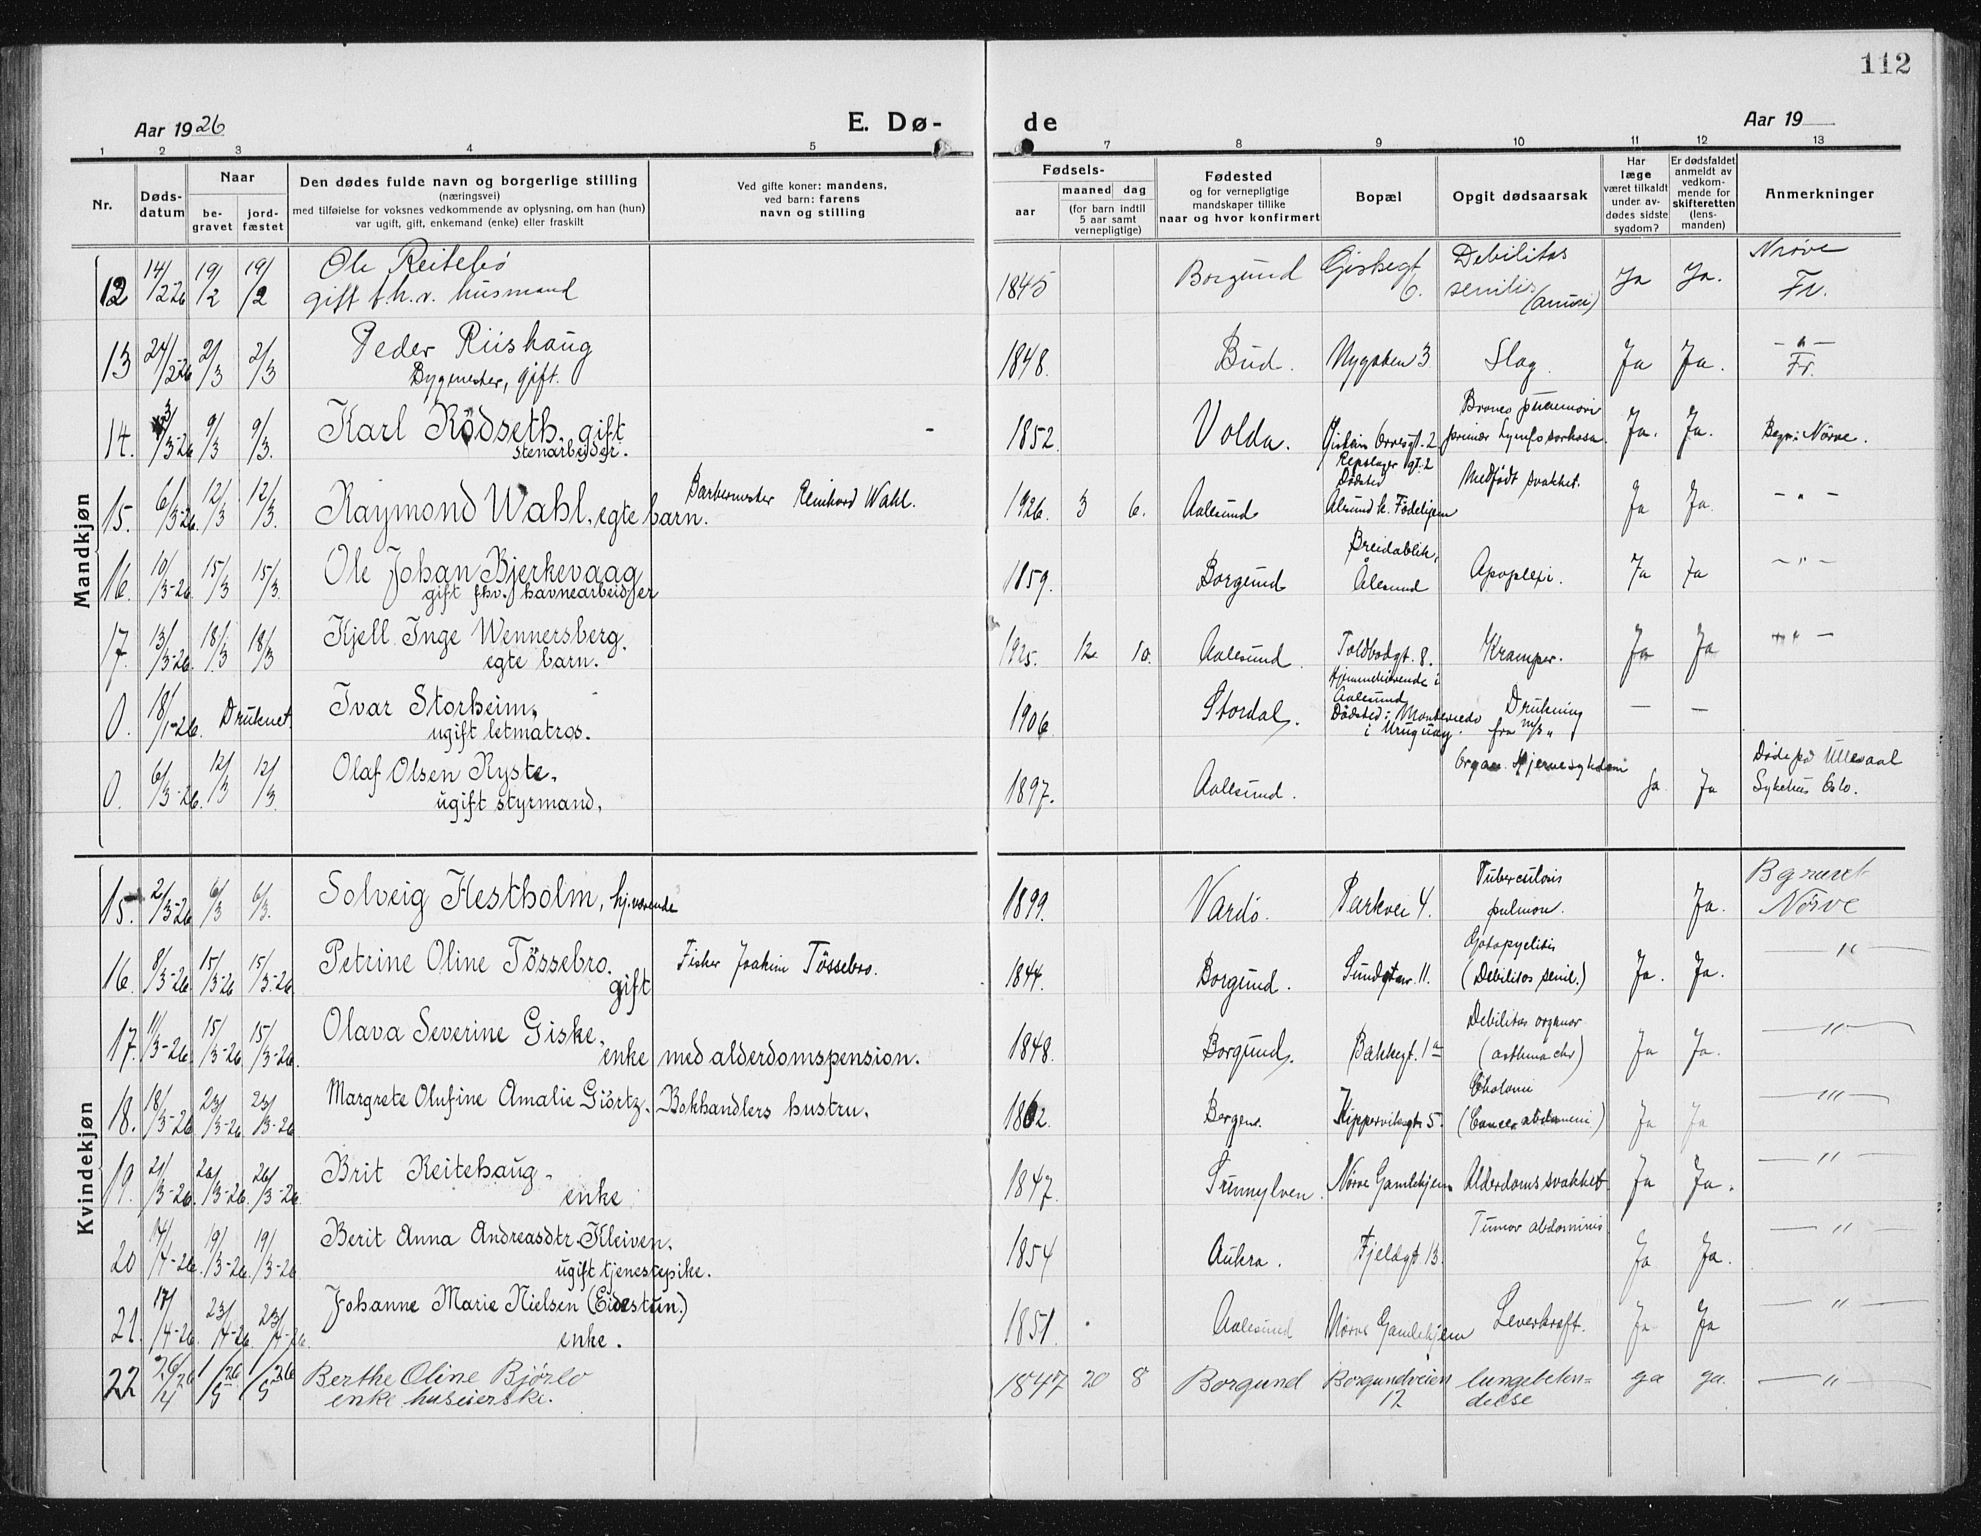 112
Aar 1926 E. Dø- de Aar 19
1 2 3 4 5 7 8 9 10 11 12 13
Nr.
Døds-datum
Naar
be-gravet
jord-fæstet
Den dødes fulde navn og borgerlige stilling
(næringsvei)
med tilføielse for voksnes vedkommende av oplysning, om han (hun)
var ugift, gift, enkemand (enke) eller fraskilt
Ved gifte koner: mandens,
ved barn: farens
navn og stilling
Fødsels-
aar
maaned dag
(for barn indtil
5 aar samt
vernepligtige)
Fødested
og for vernepligtige
mandskaper tillike
naar og hvor konfirmert
Bopæl
Opgit dødsaarsak
Har
læge
været tilkaldt
under av-
dødes sidste
sygdom?
Er dødsfaldet
anmeldt av
vedkom-
mende for
skifteretten
(lens-
manden)
Anmerkninger
Mandkjøn
12 14/2-26 19/2 19/2 Ole Reitebø 1845 Borgund Giskegt 6. Debilitas Ja Ja. Nørve
gift fh.v. husmand senilis Fr.
13 24/2-26 2/3 2/3 Peder Riishaug 1848. Bud. Nygaten 3 Slag Ja Ja. - " -
Bygmester, gift. Fr.
14. 3/3-26 9/3 9/3. Karl Rödseth, gift 1852. Volda. Ja. Ja. Begr: Nørve.
stenarbeider.
Repslager gt. 2
Dødsted
15. 6/3-26. 12/3 12/3. Raymond Wahl, egte barn. Barbermester Reinhard Wahl. 1926. 3 6. Aalesund Alesund k. Fødehjem Medfødt svakhet. Ja Ja. - " -
16. 10/3-26 15/3 15/3. Ole Johan Bjerkevaag 1859. Borgund Breidablik, Apoplexi. Ja Ja - " -
gift fhv. havnearbeider Ålesund
17. 13/3-26. 18/3 18/3 Kjell Inge Wennersberg. 1925. 12 10. Aalesund. Toldbodgt. 8. Kramper. Ja Ja - " -
egte barn.
0. 18/1-26. Druknet Ivar Storheim, 1906 Stordal. Hjemmehørende i Aalesund Drukning — —
ugift letmatros. Dødsted: Montevideo i Uruguay. fra m/s "
0. 6/3-26. 12/3 12/3. Olaf Olsen Ryste, 1897. Aalesund. Organ. Hjernesykdom Ja Ja Døde på Ullevaal
ugift styrmand. Sykehus Oslo.
Kvindekjøn
15. 2/3-26 6/3 6/3. Solveig Hestholm, hj.værende 1899. Vardö. Parkvei 4. Tuberculosis Ja. Bgravet
pulmon. Nörve
16. 8/3-26 15/3-26 15/3-26 Petrine Oline Tössebro. Fisker Joakim Tössebro. 1844. Borgund. 11. Ja. Ja. — " —
gift (Debilitas senil.)
17. 11/3-26. 15/3-26. 15/3-26. Olava Severine Giske, 1848. Borgund. Bakkegt. 1a Debilitas Ja Ja. — " —
enke med alderdomspension. (asthma chr)
18. 18/3-26 23/3-26 23/3-26 Margrete Olufine Amalie Giörtz. Bokhandlers hustru. 1862. Bergen. Kippervikgt 5. (Cancer abdomeni) Ja Ja — " —
19. 21/3-26 26/3-26. 26/3-26. Brit Reitehaug - 1847. Sunnylven. Nörve Gamlehjem Alderdomssvakhet Ja Ja. — " —
enke
20 14/4-26. 19/3-26. 19/3-26 Berit Anna Andreasdtr. Kleiven. 1854 Aukra. Fjeldgt 13. Tumor abdominis Ja Ja. — " —
ugift tjenestepike.
21. 17/4-26. 23/4-26. 23/4-26. Johanne Marie Nielsen (Eidestun.) 1851. Aalesund Nörve Gamlehjem Leverkræft. Ja Ja — " —
enke.
22 26/4 26 1/5 26 1/5 26 Berthe Oline Bjørlo 1847 20 8 Borgund Borgundveien lungebeten= ja ja. — " —
enke huseierske. 12 delse